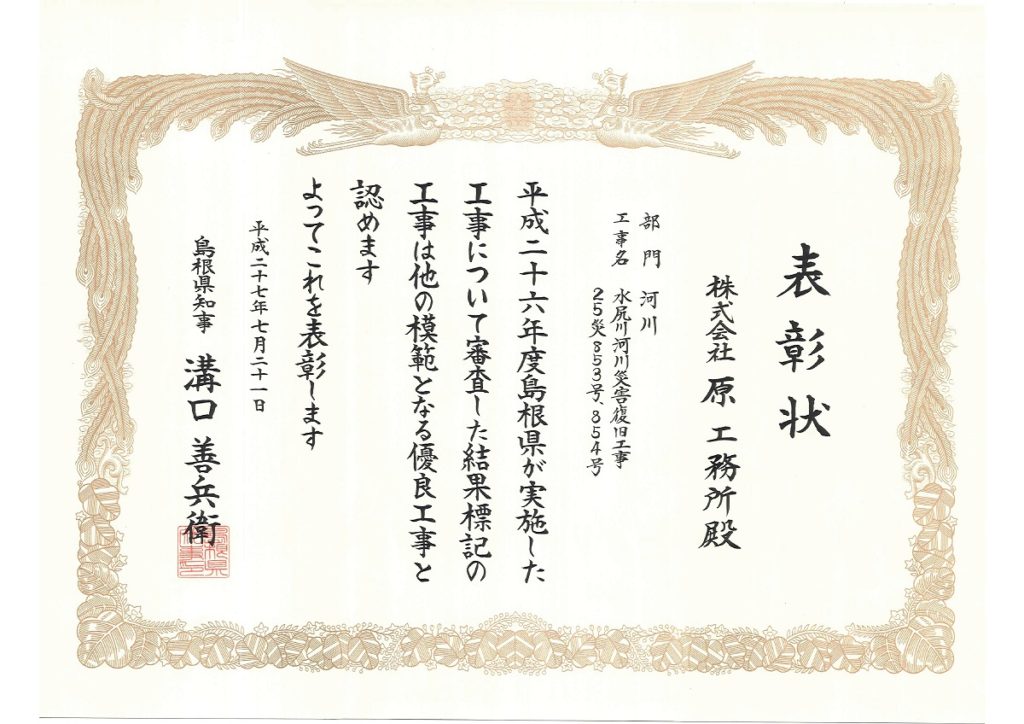 表彰状
株式会社 原工務所殿
部門 河川
工事名 水尻川河川災害復旧工事
25災853号、854号
平成二十六年度島根県が実施した
工事について審査した結果標記の
工事は他の模範となる優良工事と
認めます
よってこれを表彰します
平成二十七年七月二十一日
島根県知事 溝口善兵衛